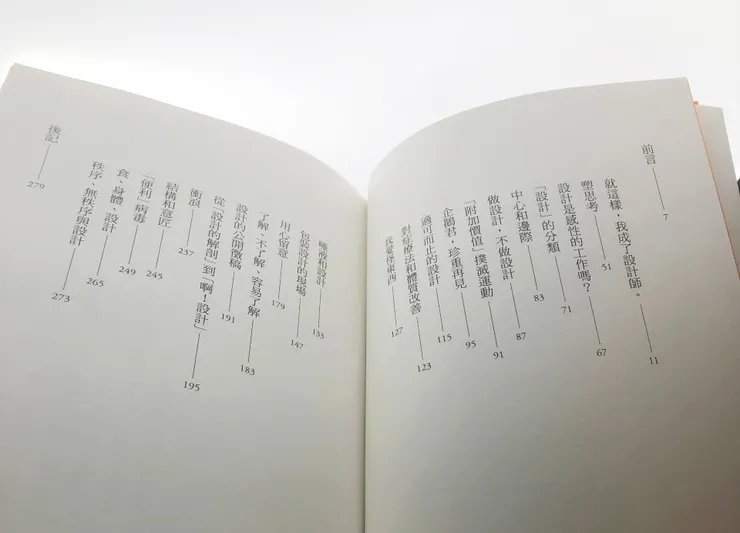 前言 7
就這樣，我成了設計師。 11
塑思考 51
設計是感性的工作嗎？ 67
「設計」的分類 71
中心和邊際 83
做設計，不做設計 87
「附加價值」撲滅運動 91
企鵝君，珍重再見 95
適可而止的設計 115
對症療法和體質改善 123
東西 127
唾液和設計 133
包裝設計的現場 147
用心留意 179
了解、不了解、容易了解 183
設計的公開徵稿 191
從「設計的解剖」到「啊！設計」 195
衝浪 237
結構和意匠 245
「便利」病毒 249
食、身體、設計 265
秩序、無秩序與設計 273
後記 279